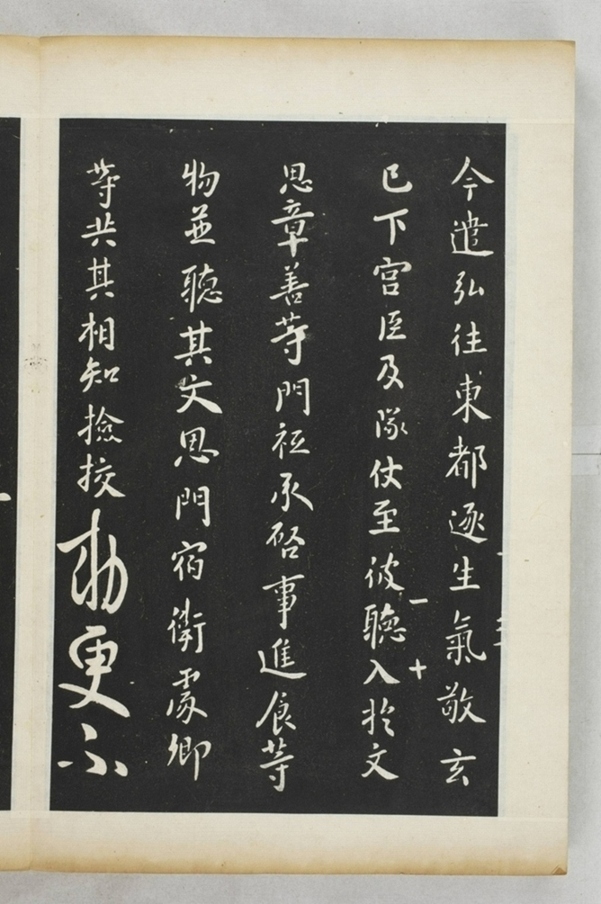 今遣弘往東都逐生氣敬玄
已下宮臣及隊仗至彼聽入於文
思章善等門祗承啓事進食等
物並聽其文思門宿衛處卿
等共其相知撿挍勅更不